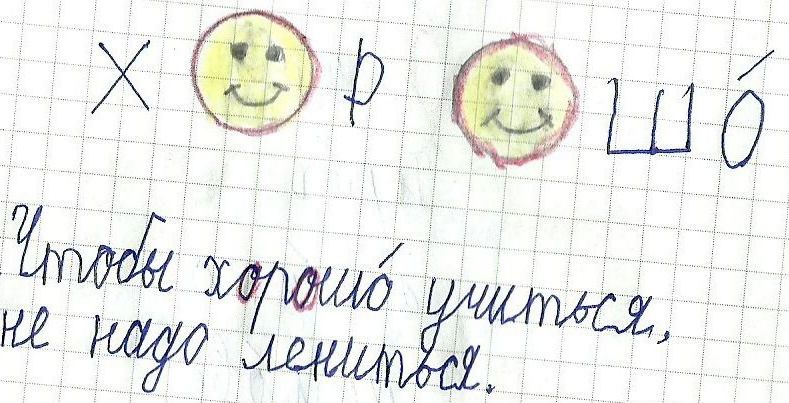 Х Р ШО́
Чтобы хорошо́ учиться,
не надо лениться.